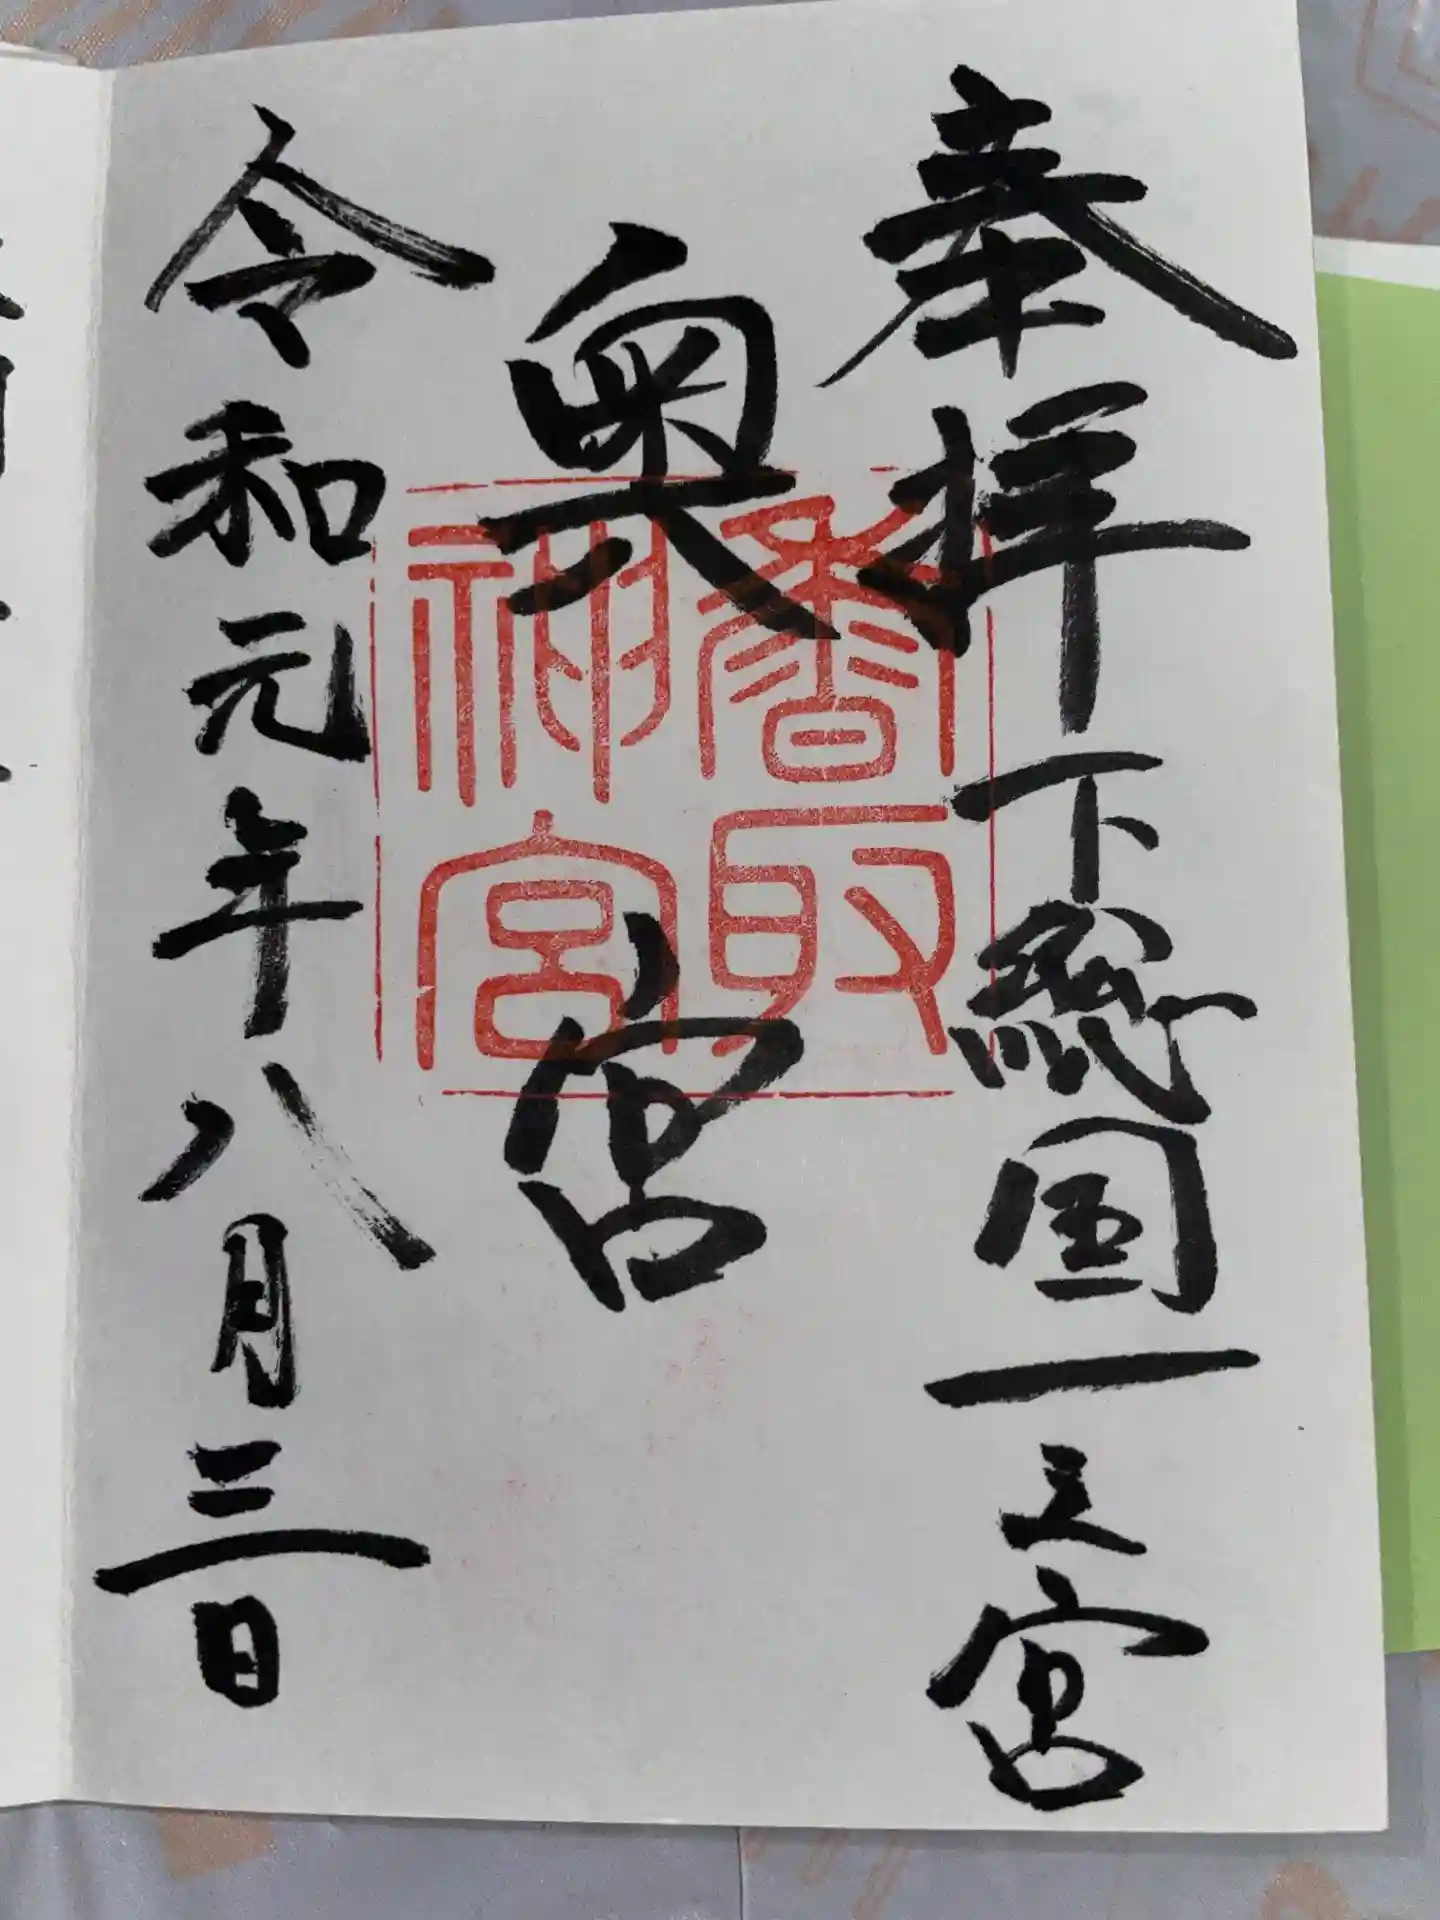 奉拝 下総国一之宮
奥宮
香取
神宮
令和元年八月三日